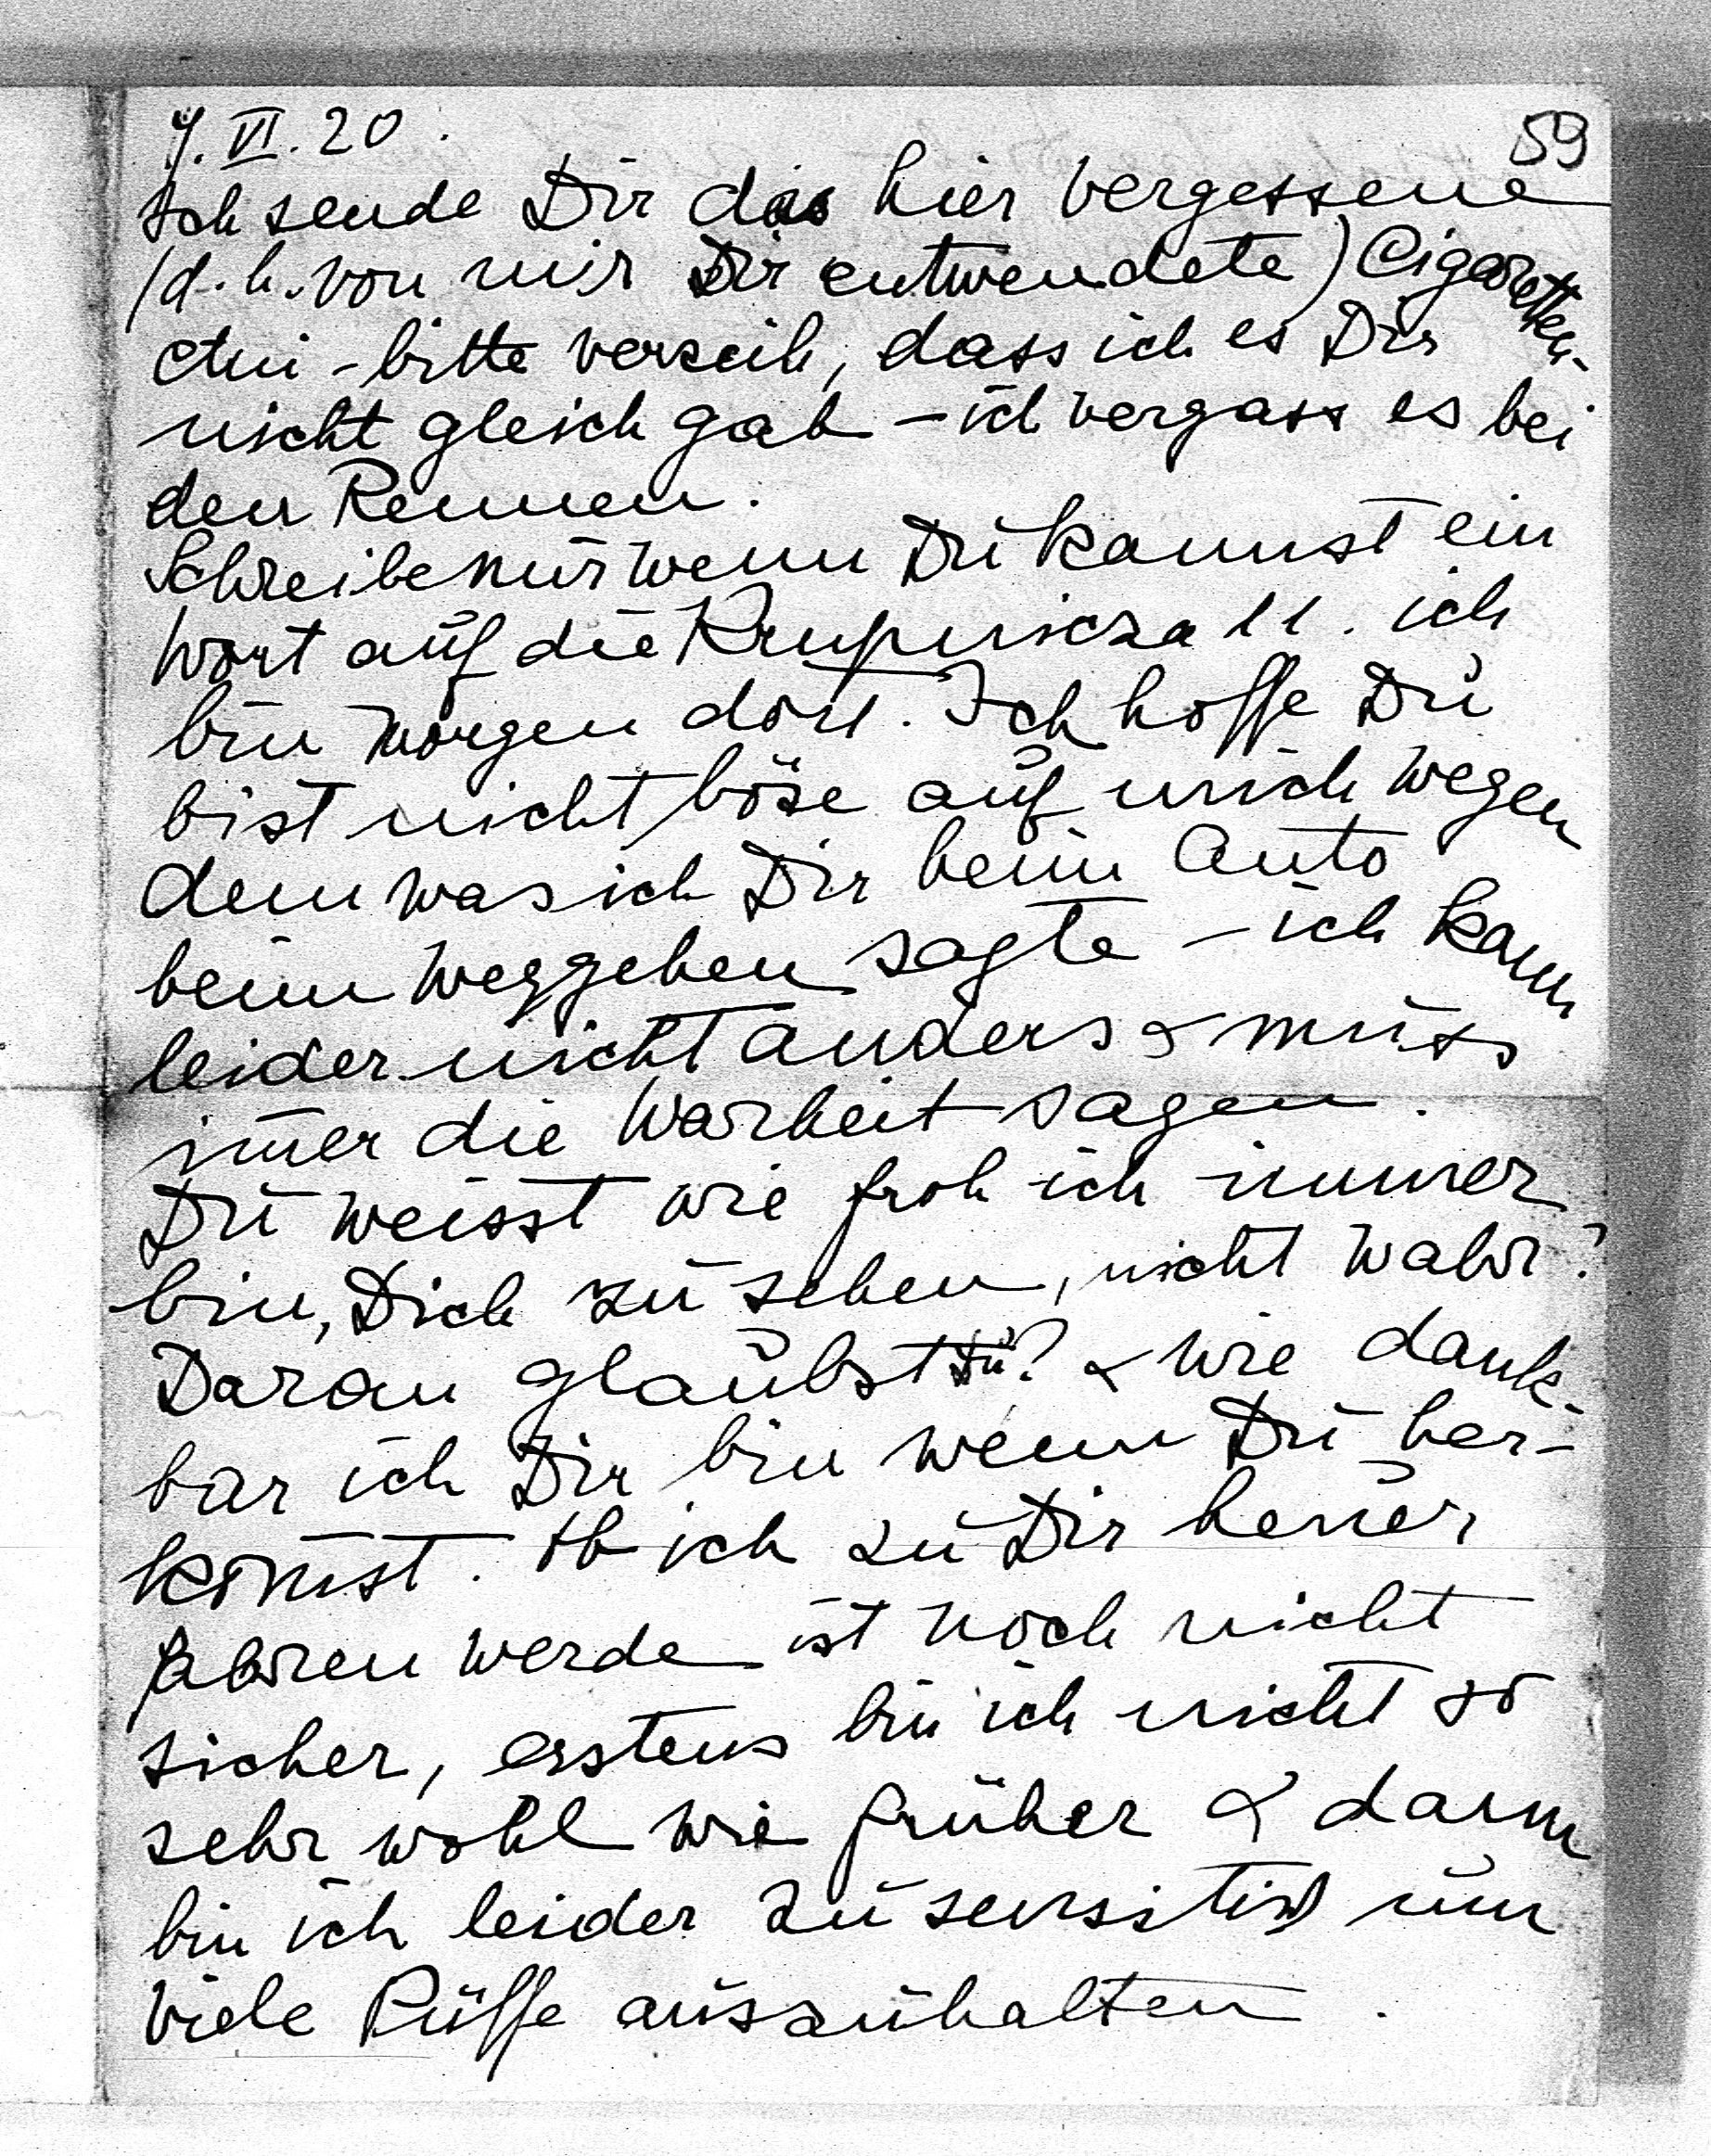 7. VI. 20.
59
Ich sende Dir das hier vergessene
(d. h. von mir Dir entwendete) Cigaretten-
etui - bitte verzeih, dass ich es Dir
nicht gleich gab - ich vergass es bei
den Rennen.
Schreibe nur wenn Du kannst ein
Wort auf die Krupnicza 11. ich
bin morgen dort. Ich hoffe Du
bist nicht böse auf mich wegen
dem was ich Dir beim Auto
beim Weggehen sagte - ich kann
leider nicht anders & muss
im̄er die Warheit sagen.
Du weisst wie froh ich immer
bin, Dich zu sehen, nicht wahr?
Daran glaubst Du? & wie dank-
bar ich Dir bin wenn Du her-
kom̄st. Ob ich zu Dir heuer
fahren werde ist noch nicht
sicher, erstens bin ich nicht so
sehr wohl wie früher & dann
bin ich leider zu sensitiv um
viele Püffe auszuhalten.